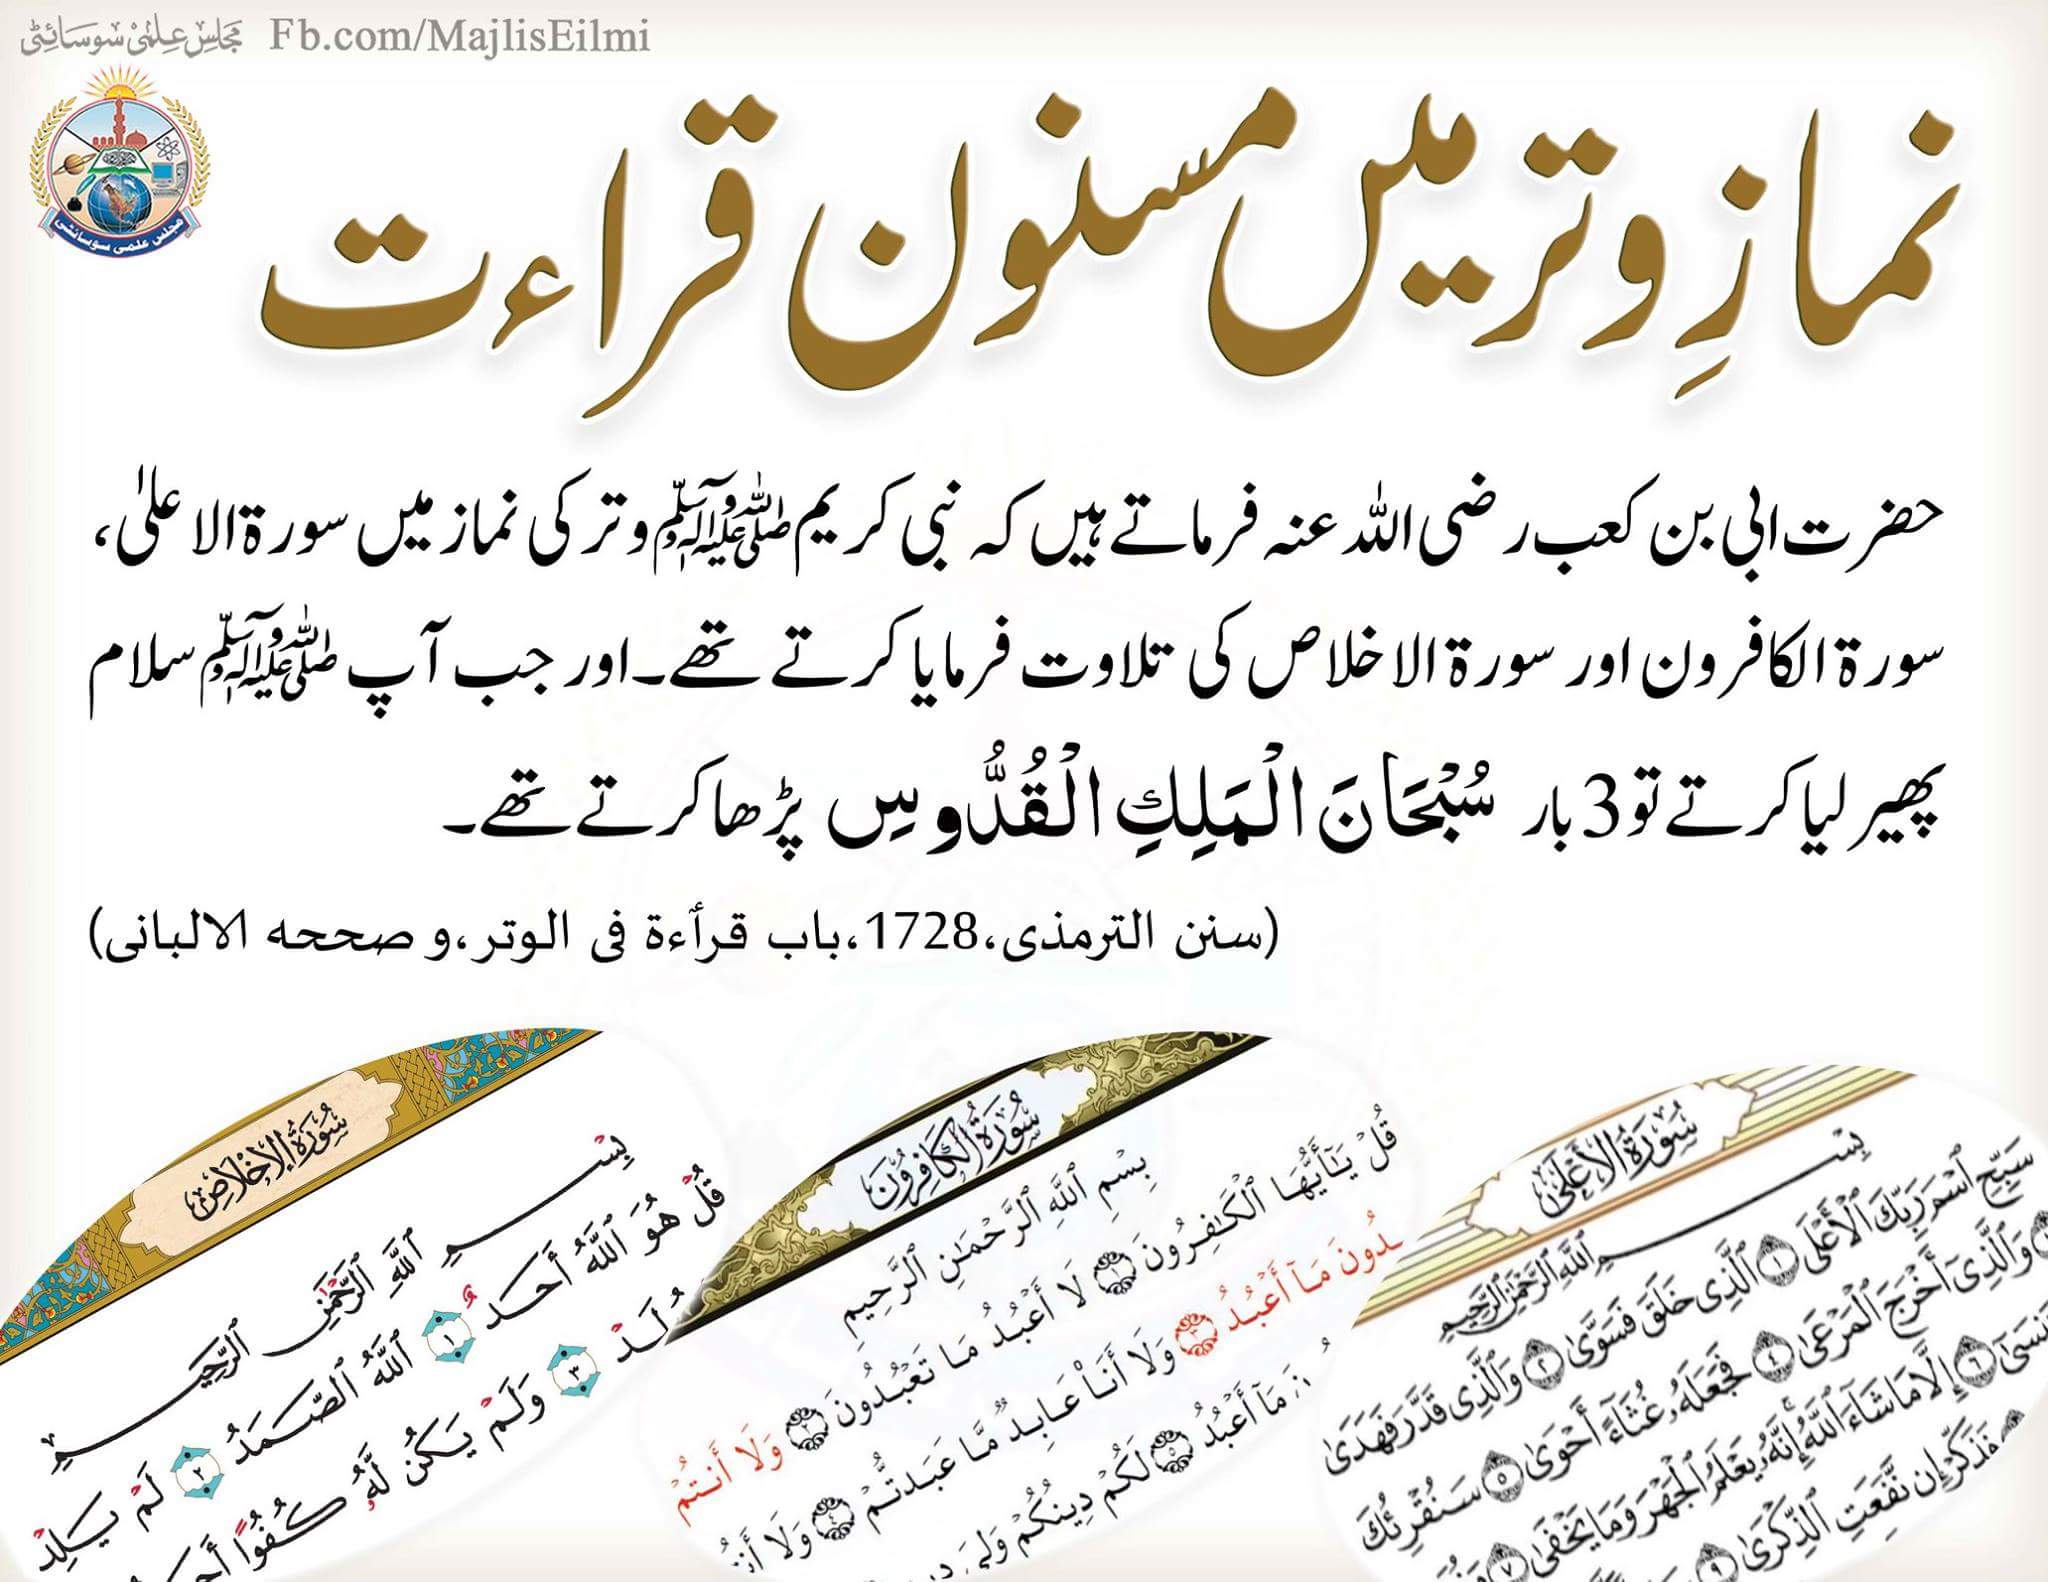 مجلس علمی سوسائٹی Fb.com/MajlisEilmi
مجلس علمی سوسائٹی
نمازِ وتر میں مسنون قراءت
حضرت ابی بن کعب رضی اللہ عنہ فرماتے ہیں کہ نبی کریم ﷺ وتر کی نماز میں سورۃ الاعلیٰ،
سورۃ الکافرون اور سورۃ الاخلاص کی تلاوت فرمایا کرتے تھے۔ اور جب آپ ﷺ سلام
پھیر لیا کرتے تو 3 بار سُبْحَانَ الْمَلِكِ الْقُدُّوسِ پڑھا کرتے تھے۔
(سنن الترمذی، 1728، باب قرأءۃ فی الوتر، و صححه الالبانی)
سُورَةُ الأَعْلَىٰ
بِسْمِ اللَّهِ الرَّحْمَٰنِ الرَّحِيمِ
سَبِّحِ اسْمَ رَبِّكَ الْأَعْلَى ١ الَّذِي خَلَقَ فَسَوَّىٰ ٢ وَالَّذِي قَدَّرَ فَهَدَىٰ
وَالَّذِي أَخْرَجَ الْمَرْعَىٰ ٤ فَجَعَلَهُ غُثَاءً أَحْوَىٰ ٥ سَنُقْرِئُكَ
تَنسَىٰ ٦ إِلَّا مَا شَاءَ اللَّهُ إِنَّهُ يَعْلَمُ الْجَهْرَ وَمَا يَخْفَىٰ ٧
فَذَكِّرْ إِن نَّفَعَتِ الذِّكْرَىٰ ٩
سُورَةُ الكَافِرُونَ
بِسْمِ اللَّهِ الرَّحْمَٰنِ الرَّحِيمِ
قُلْ يَٰٓأَيُّهَا الْكَٰفِرُونَ ١ لَا أَعْبُدُ مَا تَعْبُدُونَ ٢ وَلَا أَنتُمْ
ـدُونَ مَا أَعْبُدُ ٣ وَلَا أَنَا۠ عَابِدٌ مَّا عَبَدتُّمْ ٤ وَلَا أَنتُـ
مَا أَعْبُدُ ٥ لَكُمْ دِينُكُمْ وَلِيَ دِيـ
سُورَةُ الإِخْلَاصِ
بِسْمِ اللَّهِ الرَّحْمَٰنِ الرَّحِيمِ
قُلْ هُوَ اللَّهُ أَحَدٌ ١ اللَّهُ الصَّمَدُ ٢ لَمْ يَلِدْ
ـُولَدْ ٣ وَلَمْ يَكُن لَّهُ كُفُوًا أَحَـ